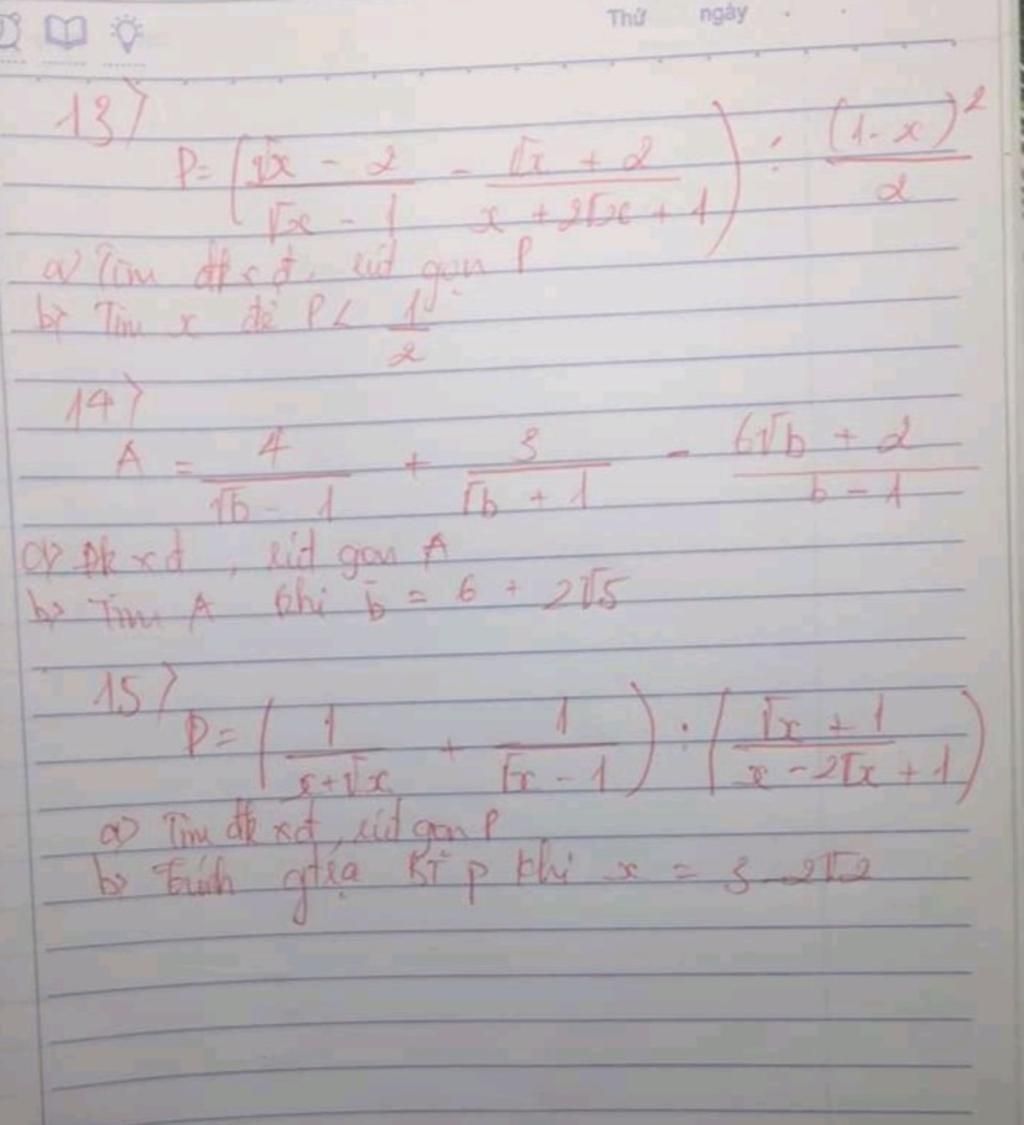 Thứ ngày
13>
P = ( (√x - 2)/(√x - 1) - (√x + 2)/(x + 2√x + 1) ) : (1 - x)²/2
a> Tìm đkxđ, rút gọn P
b> Tìm x để P < 1/2
14>
A = 4/(√b - 1) + 3/(√b + 1) - (6√b + 2)/(b - 1)
a> Đkxđ, rút gọn A
b> Tìm A khi b = 6 + 2√5
15>
P = ( 1/(x + √x) + 1/(√x - 1) ) : ( (√x + 1)/(x - 2√x + 1) )
a> Tìm đkxđ, rút gọn P
b> P khi x = 3 - 2√2